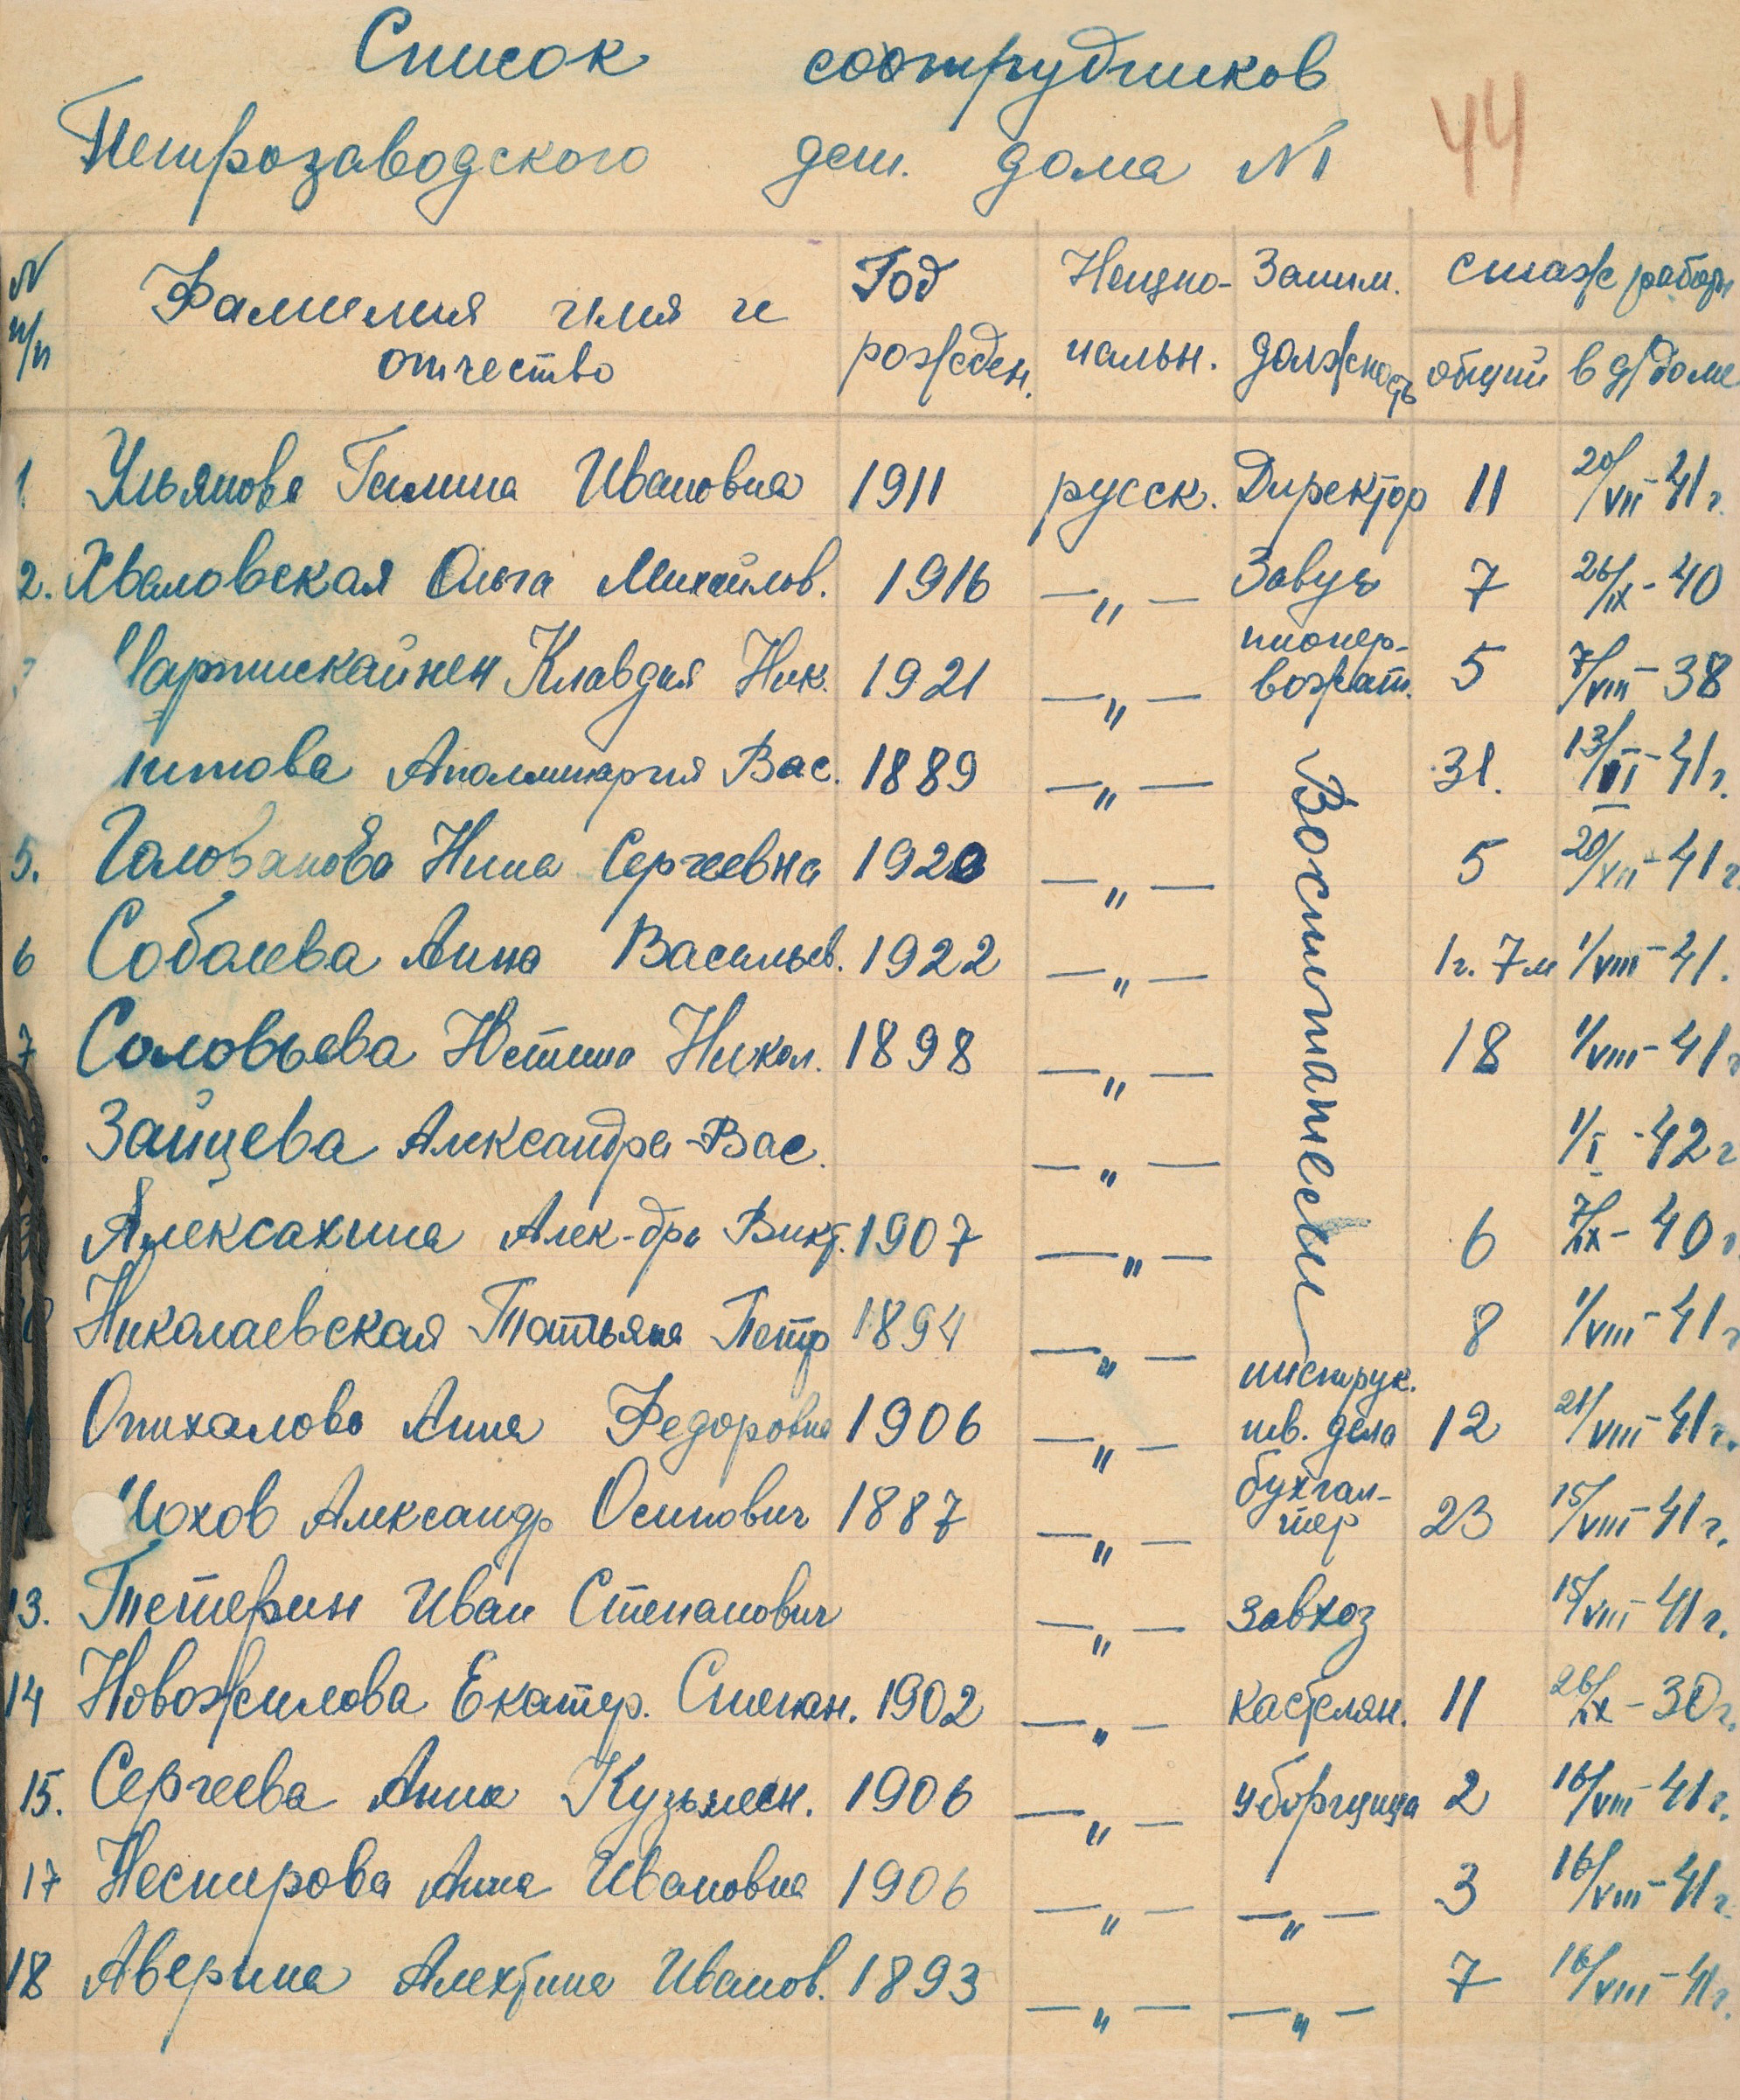 Список сотрудников
Петрозаводского дет. дома №1
44
N п/п Фамилия имя и отчество Год рожден. Национальн. Заним. должность стаж работы
общий в д/доме
1. Ульянова Галина Ивановна 1911 русск. Директор 11 20/VII-41г.
2. Хваловская Ольга Михайлов. 1916 —"— Завуч 7 26/IX-40
Клавдия Ник. 1921 —"— пионер-вожат. 5 7/VIII-38
Аполлинария Вас. 1889 —"— Воспитатели 31. 13/ -41г.
5. Голованова Нина Сергеевна 1920 —"— 5 20/XII-41г.
6 Собаева Анна Васильев. 1922 —"— 1г. 7м 1/VIII-41.
7 Соловьева Устина Никол. 1898 —"— 18 1/VIII-41г
Зайцева Александра Вас. —"— 1/I-42г
Алексахина Алек-дра Викт. 1907 —"— 6 7/IX-40г.
Николаевская Татьяна Петр 1894 —"— 8 1/VIII-41г
Опихалова Анна Федоровна 1906 —"— инструк. шв. дела 12 21/VIII-41г.
Александр Осипович 1887 —"— бухгал-тер 23 15/VIII-41г.
13. Тетерин Иван Степанович —"— завхоз 15/VIII-41г.
14 Новожилова Екатер. Степан. 1902 —"— кастелян. 11 26/IX-30г.
15. Сергеева Анна Кузьмин. 1906 —"— уборщица 2 16/VIII-41г.
17 Неспирова Анна Ивановна 1906 —"— —"— 3 16/VIII-41г.
18 Аверина Алевтина Иванов. 1893 —"— —"— 7 16/VIII-41г.